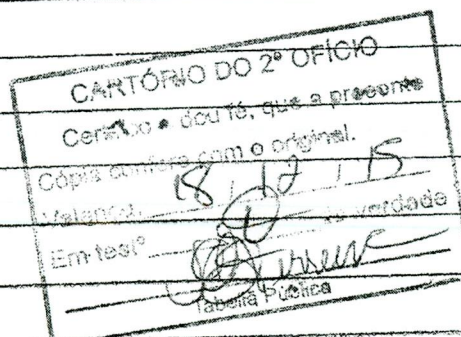 CARTÓRIO DO 2º OFÍCIO
Certifico e dou fé, que a presente
Cópia confere com o original.
Valença, 18 / 12 / 15
Em testº da verdade
Tabeliã Pública